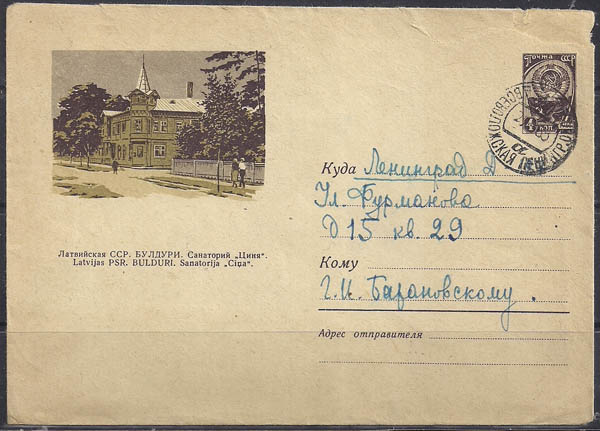 Почта СССР
4 коп.
ВСЕВОЛОЖСКАЯ ЛЕНИНГР. О
Латвийская ССР. БУЛДУРИ. Санаторий „Циня“.
Latvijas PSR. BULDURI. Sanatorija „Cīņa“.
Куда Ленинград Д
Ул. Фурманова
Д 15 кв. 29
Кому
Г. И. Барановскому.
Адрес отправителя